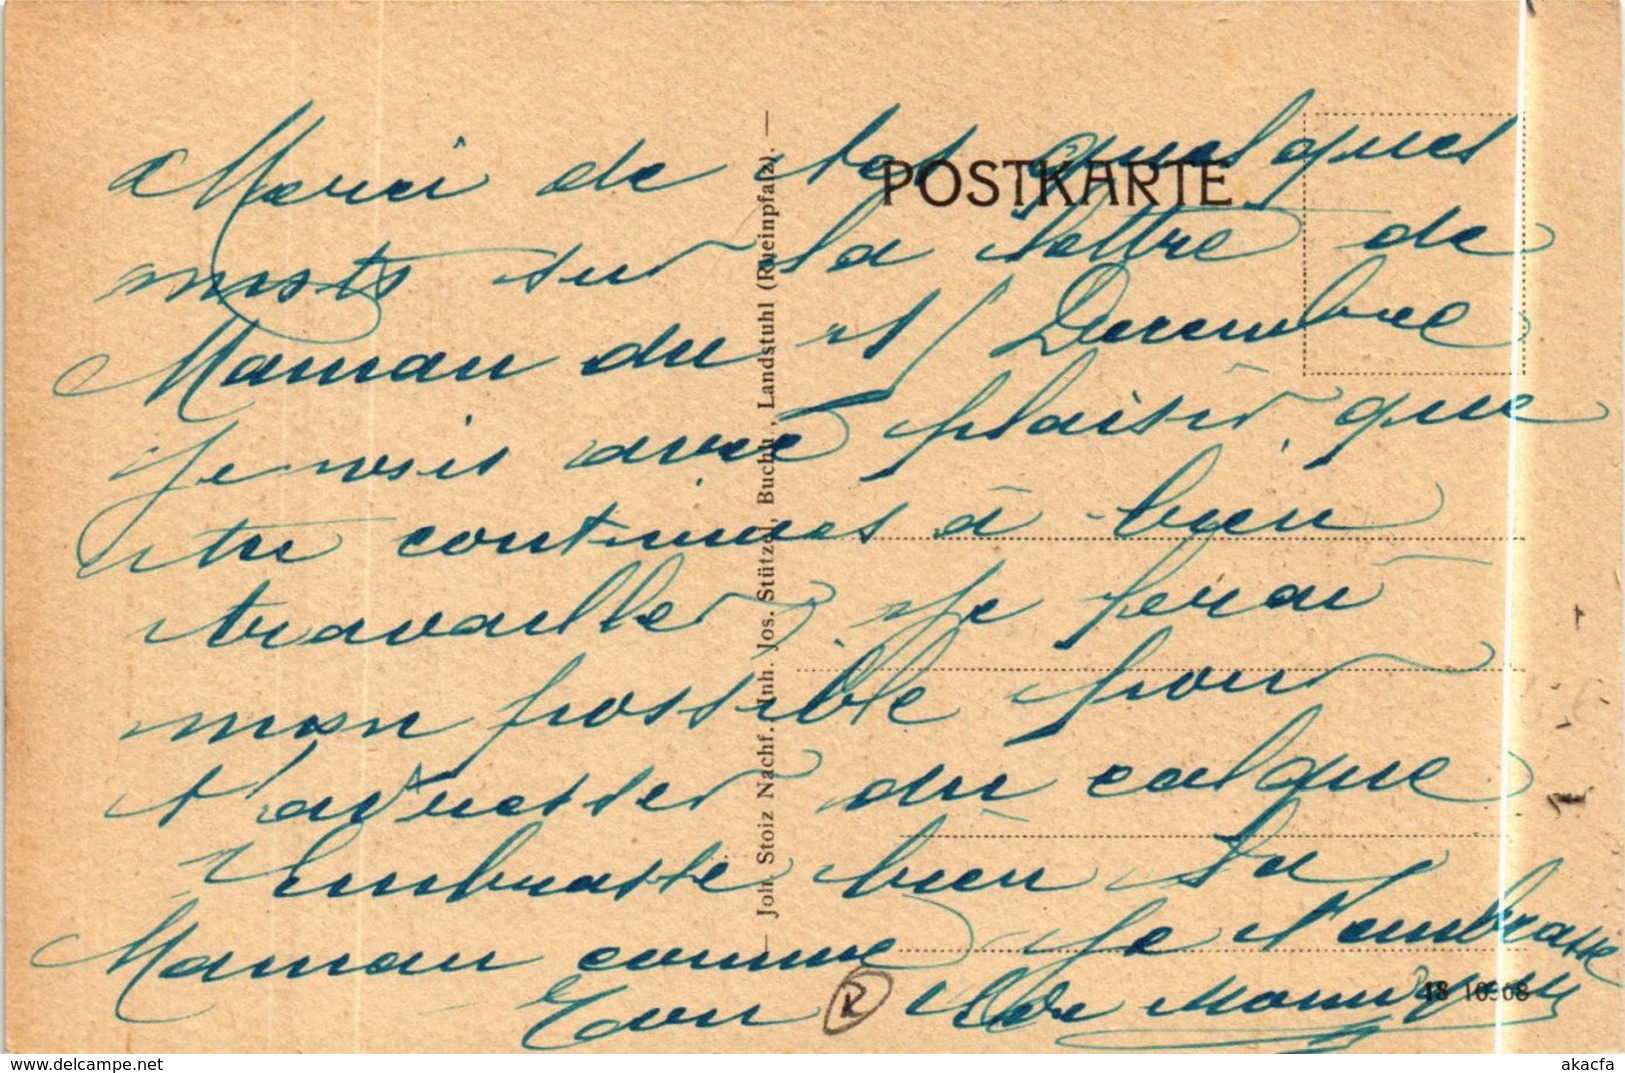 Merci de tes quelques
mots sur la lettre de
Maman du 21 Decembre
Je vois avec plaisir que
tu continues à bien
travailler Je ferai
mon possible pour
t'adresser du calque
Embrasse bien ta
Maman comme Je t'embrasse
Ton
de
POSTKARTE
Joh. Stolz Nachf. Inh. Jos. Stützel, Buchh., Landstuhl (Rheinpfalz).
18 10908
R
akacfa